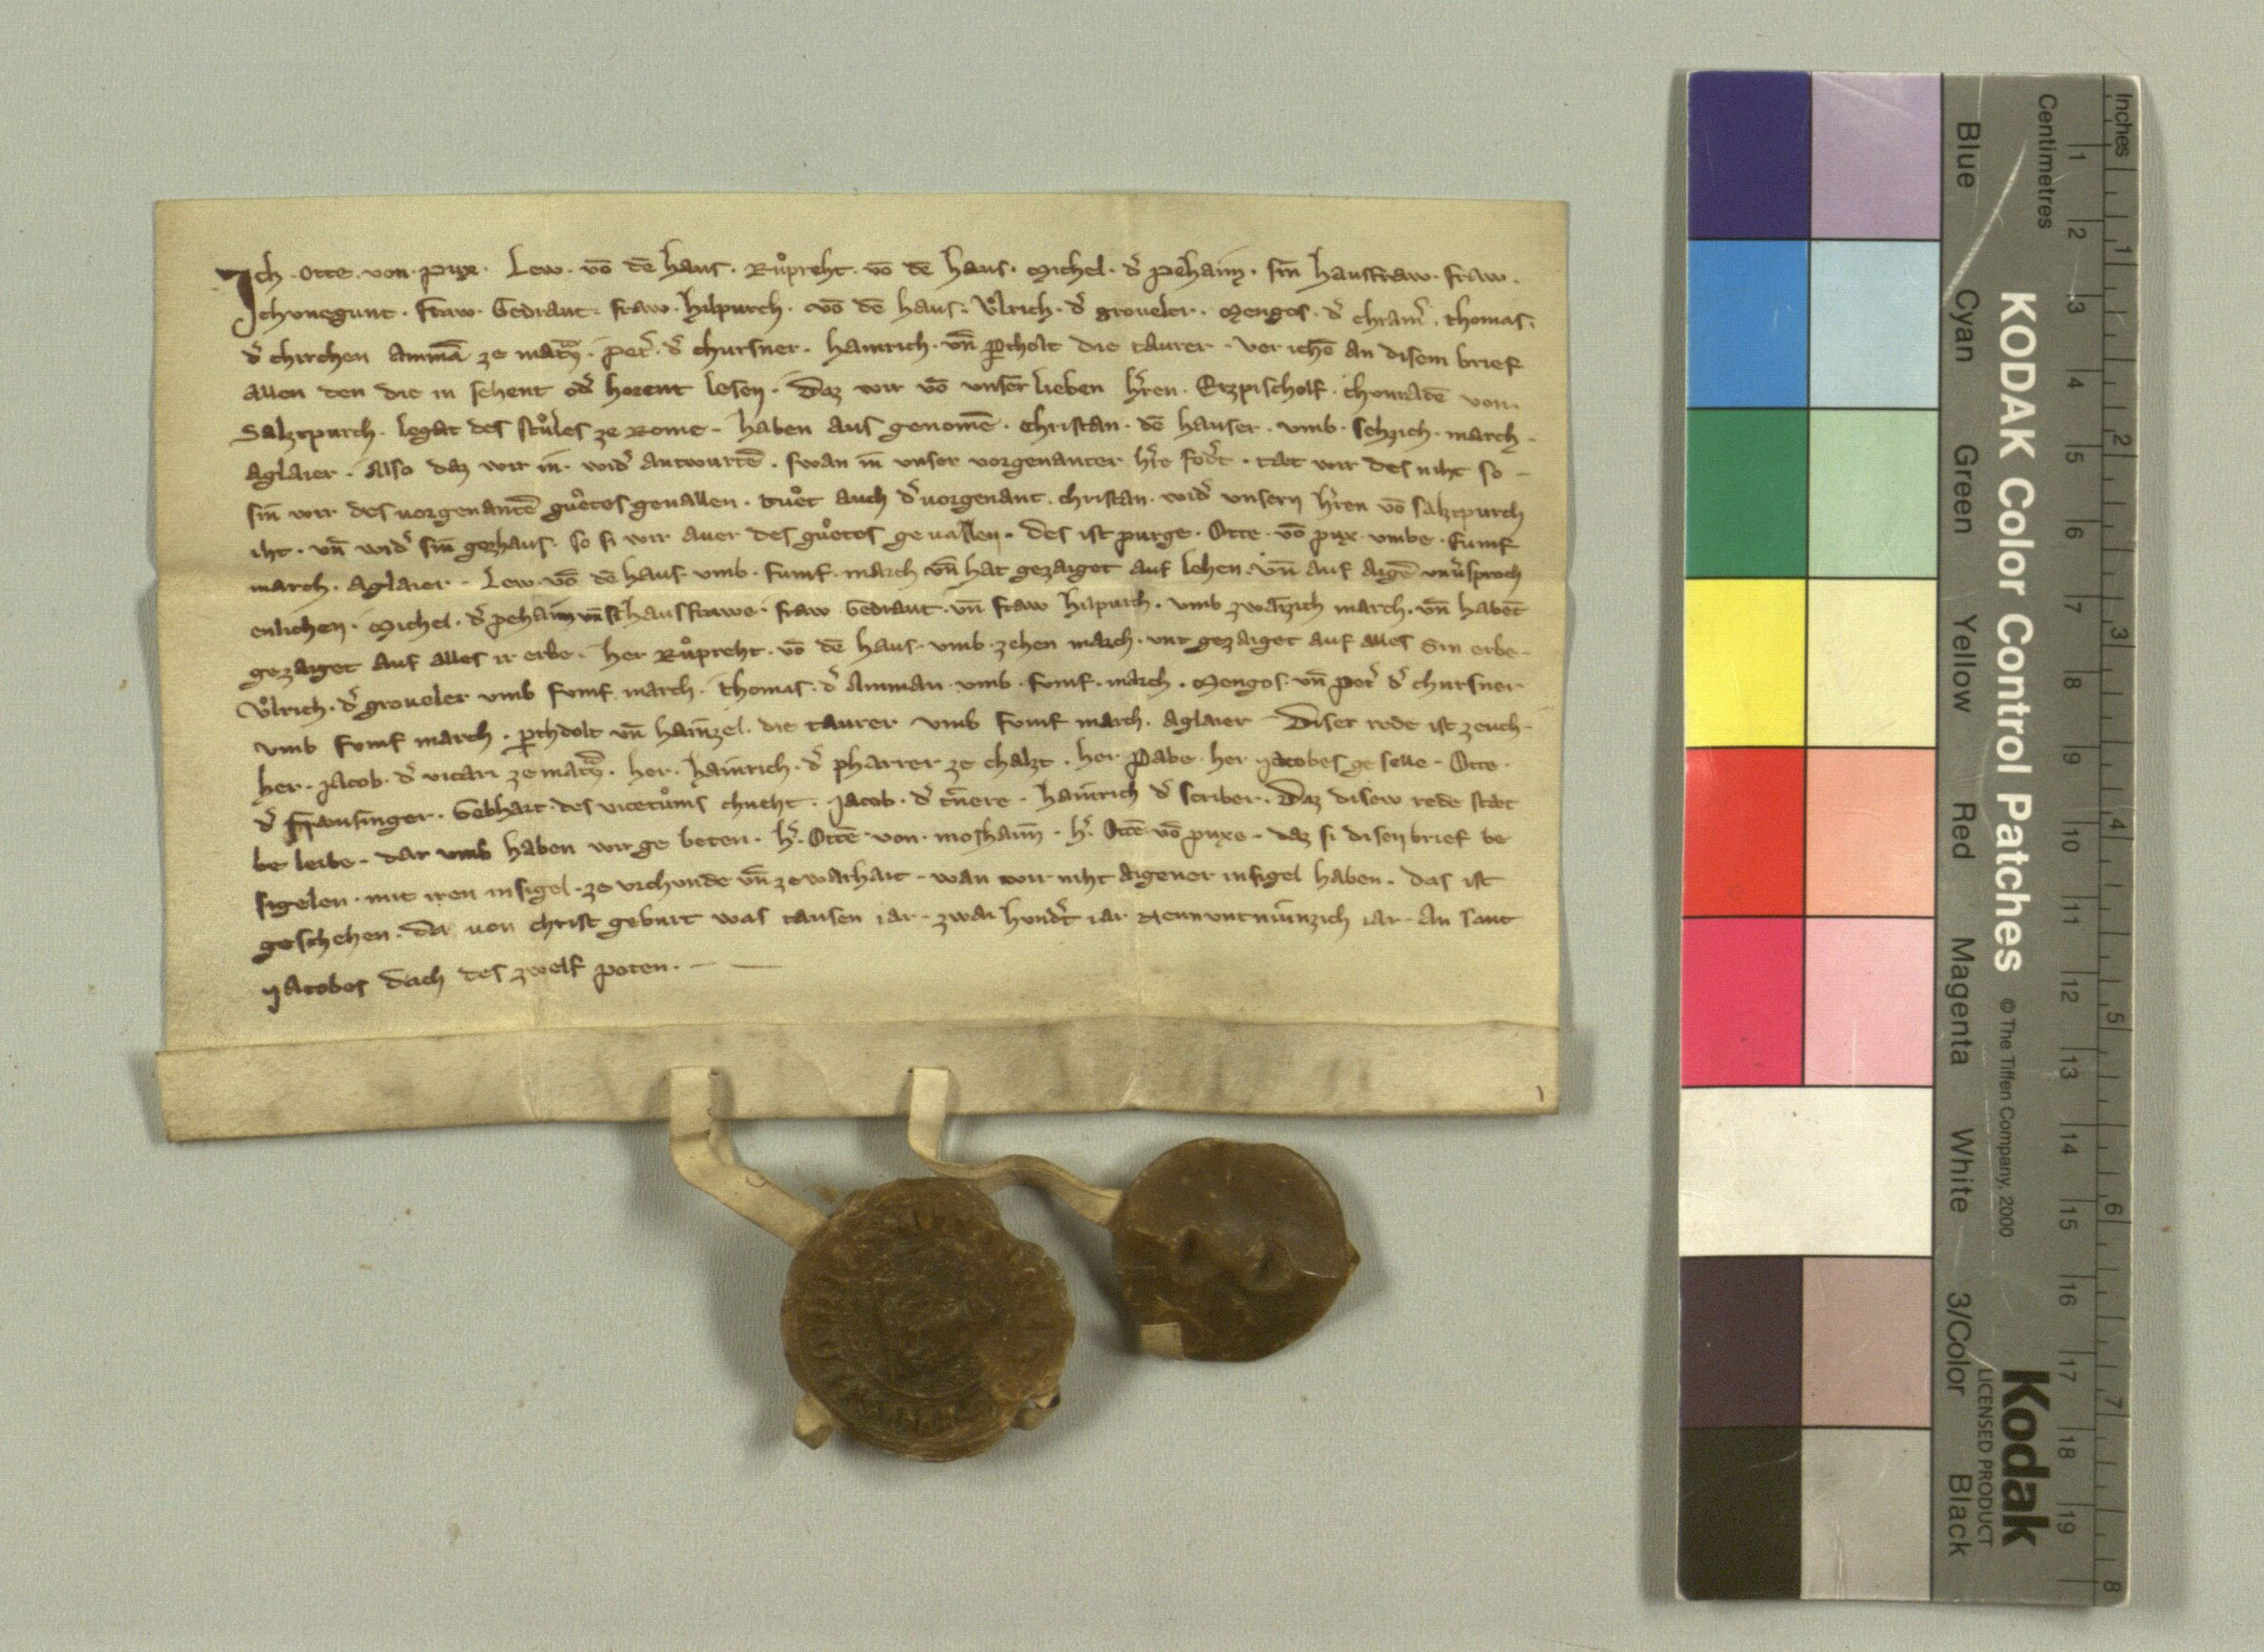 Ich . Otte . von . Pux . Lew . vō dē haus . Růpreht . vō dē haus . Michel . d̄ pehaim . sin̄ hausfraw . fraw .
chunegunt . fraw . Gedraut . fraw . hilpurch . vō dē haus . Ůlrich . d̄ groueler . Menges . d̄ chram̄ . thomas .
d̄ chirchen ammā ze . pet̄ . d̄ chursner . hainrich . vn̄ p̄tholt die taurer . veriehē an disem brief
allen den die in sehent od̄ horent lesen . Daz wir vō unserr lieben h̄ren . Erzpischolf . chunradē von .
Salzpurch . legat des stůles ze Rome . haben aus genomē . christan . dē hauser . umb . sehzich . march .
aglaier . Also daz wir in . wid̄ antwurtē . swan in unser vorgenanter h̄re fod̄t . tæt wir des niht so .
sin wir des uorgenantē gůtes geuallen . tůt auch d̄ uorgenant . christan . wid̄ unsern h̄ren vō salzpurch
iht . vn̄ wid̄ sin̄ gozhaus . so si wir auer des gůtes geuallen . des ist purge . Otte . vō pux . umbe . fumf
march . aglaier . Lew . vō dē haus . umb . fumf . march vn̄ hat gezaiget auf lehen . vn̄ auf aigē unv̄sproch
enlichen . Michel . d̄ pehaim vn̄ si hausfrawe . fraw Gedraut . vn̄ fraw hilpurch . umb zwaīzich march . vn̄ habēt
gezaiget auf alles ir erbe . her Růpreht . vō dē haus . umb . zehen march . unt gezaiget auf alles sin erbe .
Ůlrich . d̄ groueler umb fumf march . thomas . d̄ amman . umb . fumf . march . Menges . vn̄ pet̄ d̄ chursner
umb fumf march . p̄thdolt vn̄ hainzel . die taurer umb fumf march . aglaier . Diser rede ist zeuch .
her . Jacob . d̄ vicari ze . her . hainrich . d̄ pharrer ze chalzt . her Pabe . her Jacobes geselle . Otte .
d̄ . Gebhart . des vicetůms chneht . Jacob . d̄ . hainrich d̄ scriber . Daz disew rede stæt
beleibe . dar umb haben wir gebeten . h̄ . Ottē . von . moshaim̄ . h̄ . Ottē . vō puxe . daz si disen brief be
sigelen . mit iren insigel . ze urchunde vn̄ ze warhait . wan wir niht aigener insigel haben . das ist
geschehen . da uon christ geburt was tausen iar . zwai hund̄t iar Neun unt niunzich iar . An sant
Jacobes dach des zwelf poten .
KODAK Color Control Patches
© The Tiffen Company, 2000
Kodak
LICENSED PRODUCT
Inches
Centimetres
1 2 3 4 5 6 7 8 9 10 11 12 13 14 15 16 17 18 19
1 2 3 4 5 6 7 8
Blue Cyan Green Yellow Red Magenta White 3/Color Black